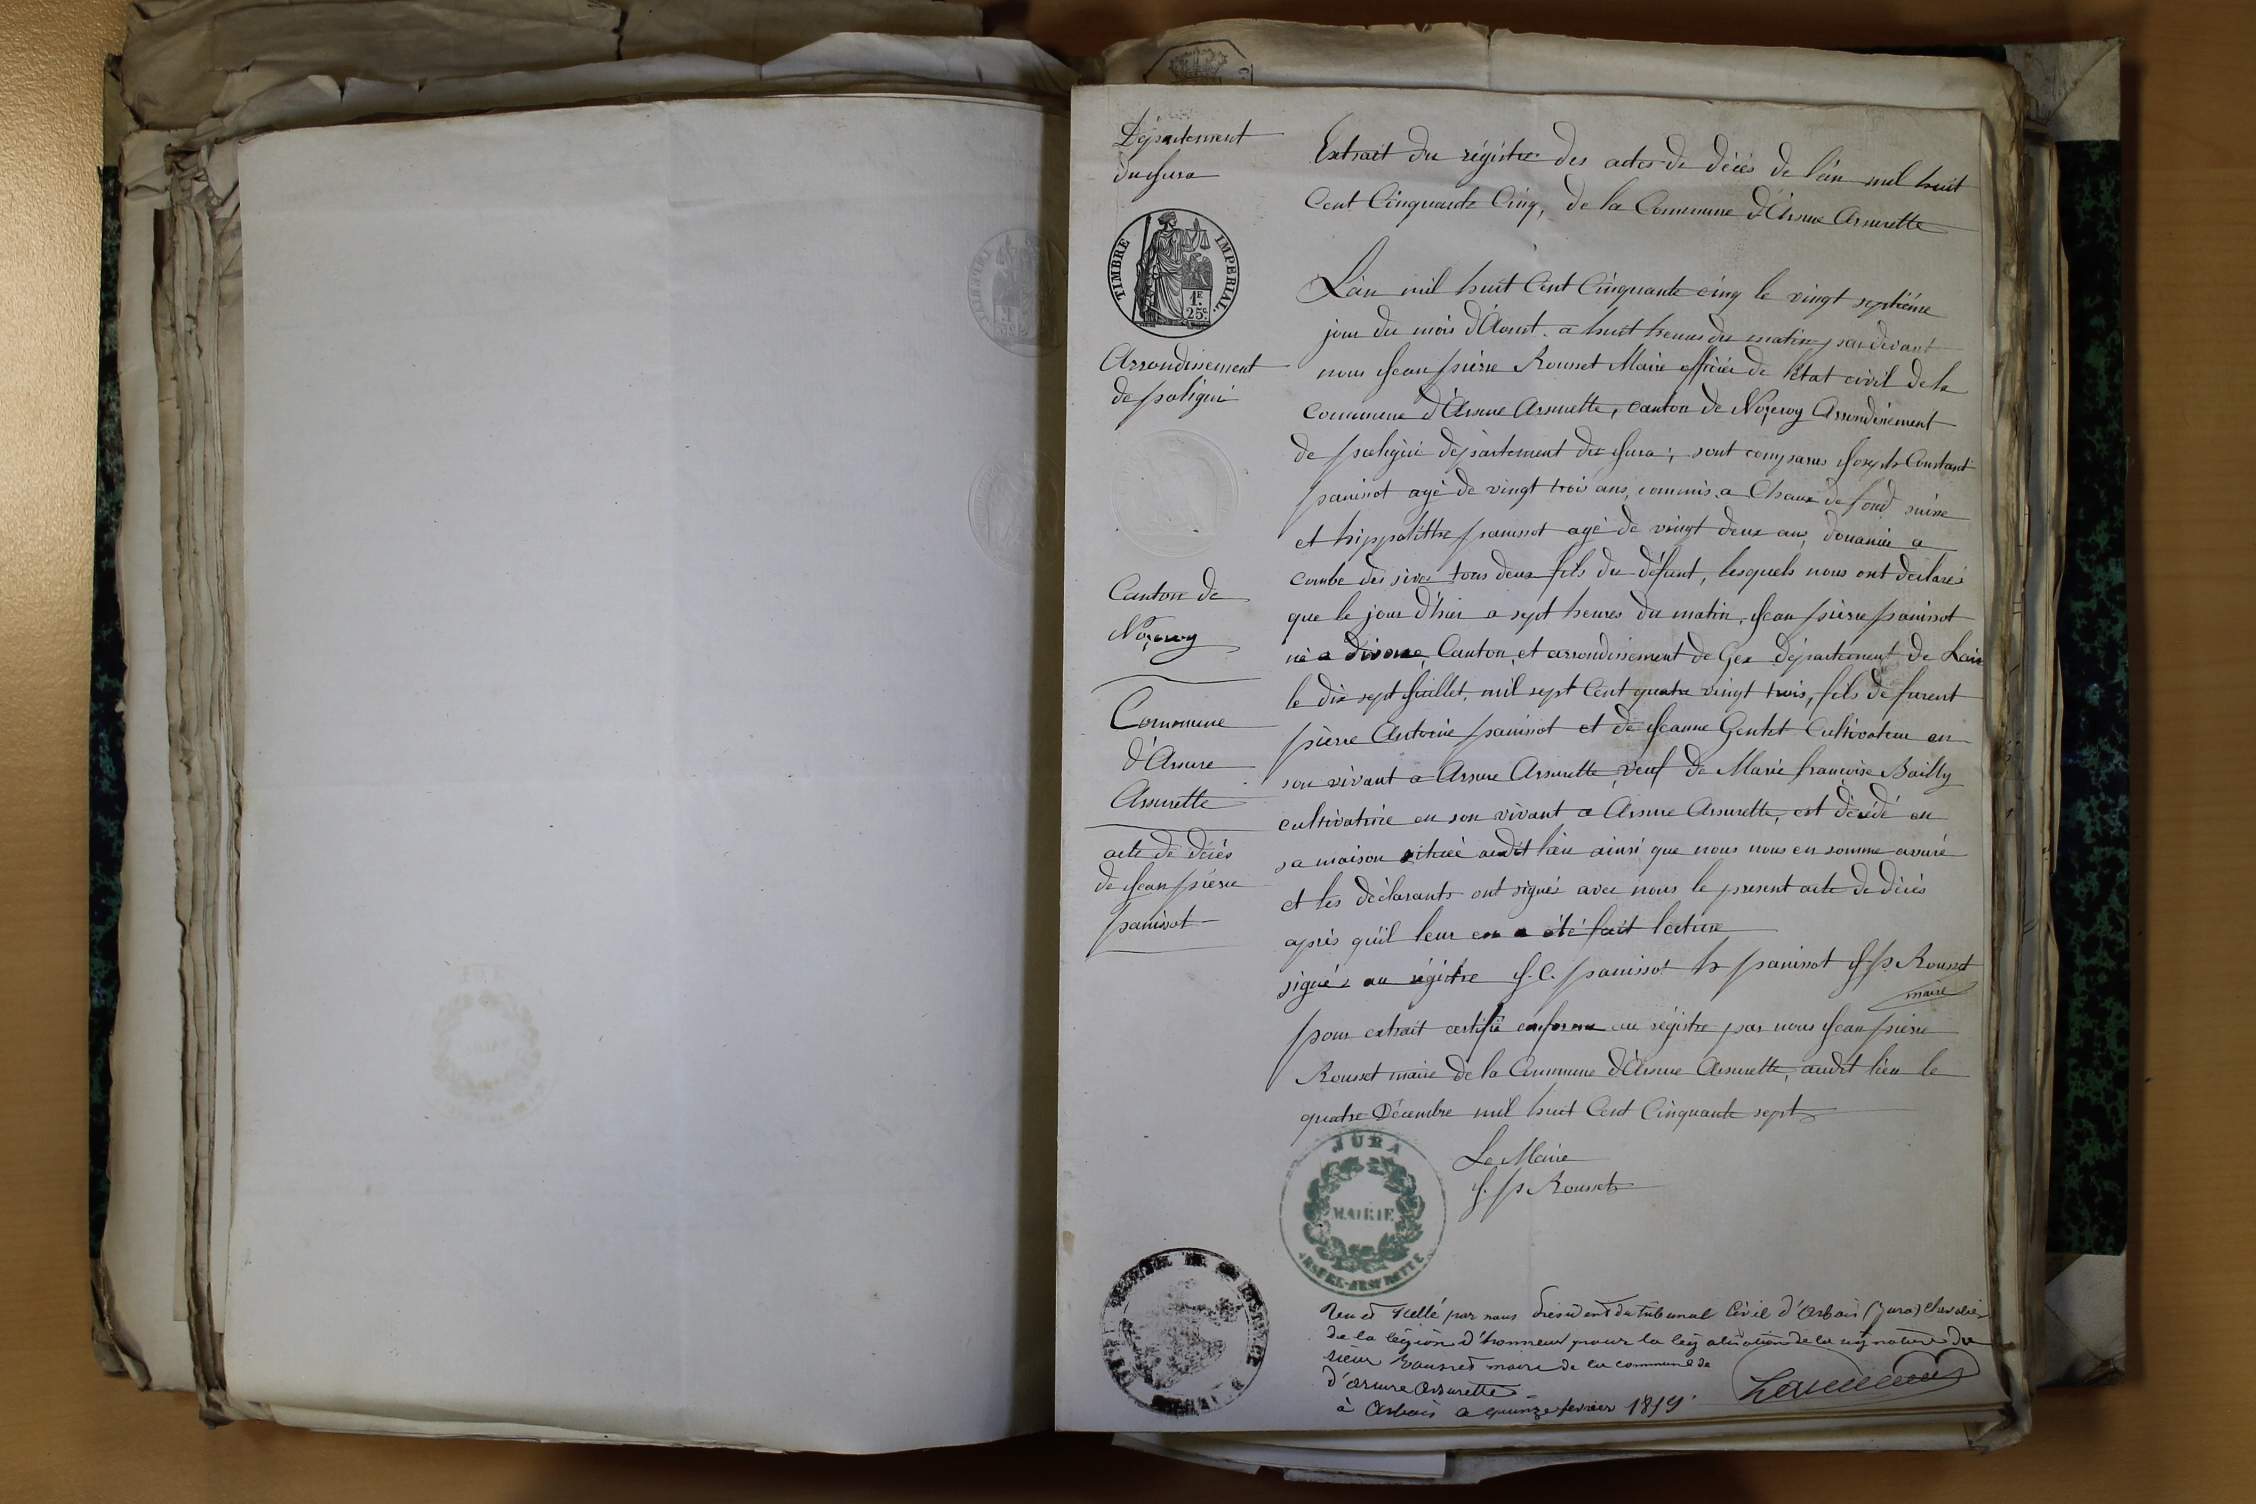 Département
du Jura
TIMBRE IMPERIAL.
1F
25c.
Arrondissement
de poligni
Canton de
Nozeroy
Commune
d'Arsure
Arsurette
acte de décès
de Jean pierre
panissot
Extrait du régistre des actes de décès de l'an mil huit
Cent Cinquante Cinq, de la Commune d'Arsure Arsurette
L'an mil huit Cent Cinquante cinq le vingt septiéme
jour du mois d'Aoust a huit heures du matin, pardevant
nous Jean pierre Rousset Maire officiér de l'état civil de la
Commune d'Arsure Arsurette, canton de Nozeroy Arrondisement
de poligni département du Jura; sont comparus Joseph Constant
panissot agé de vingt trois ans, commis a Chaux de fond suisse
et hippolitthe panissot agé de vingt deux ans, douanié a
combe des sives tous deux fils du défunt, lesquels nous ont déclarés
que le jour d'hiér a sept heures du matin, Jean pierre panissot
né a divone, Canton, et arrondissement de Gex département de Lain
le dix sept Juillet, mil sept Cent quatre vingt trois, fils de furent
pierre Antoine panissot et de Jeanne Gentet Cultivateur en
son vivant a Arsure Arsurette, veuf de Marie francoise Bailly
cultivatrice en son vivant a Arsure Arsurette, est décédé en
sa maison située audit lieu ainsi que nous nous en somme assuré
et les déclarants ont signés avec nous le present acte de décés
aprés qu'il leur en a été fait lecture
signés au régitre J. C. panissot h panissot J. p. Rousset
maire
pour extrait certifié conforme au régistre par nous Jean pierre
Rousset maire de la Commune d'Arsure Arsurette, audit lieu le
quatre Décembre mil huit Cent Cinquante sept
Le Maire
J. p Rousset
JURA
MAIRIE
ARSURE-ARSURETTE
Vu et scellé par nous Président du tribunal Civil d'Arbois (Jura) chevalier
de la légion d'honneur pour la légalisation de la signature du
sieur Rousset maire de la commune de
d'Arsure Arsurette
à Arbois a quinze fevrier 1859